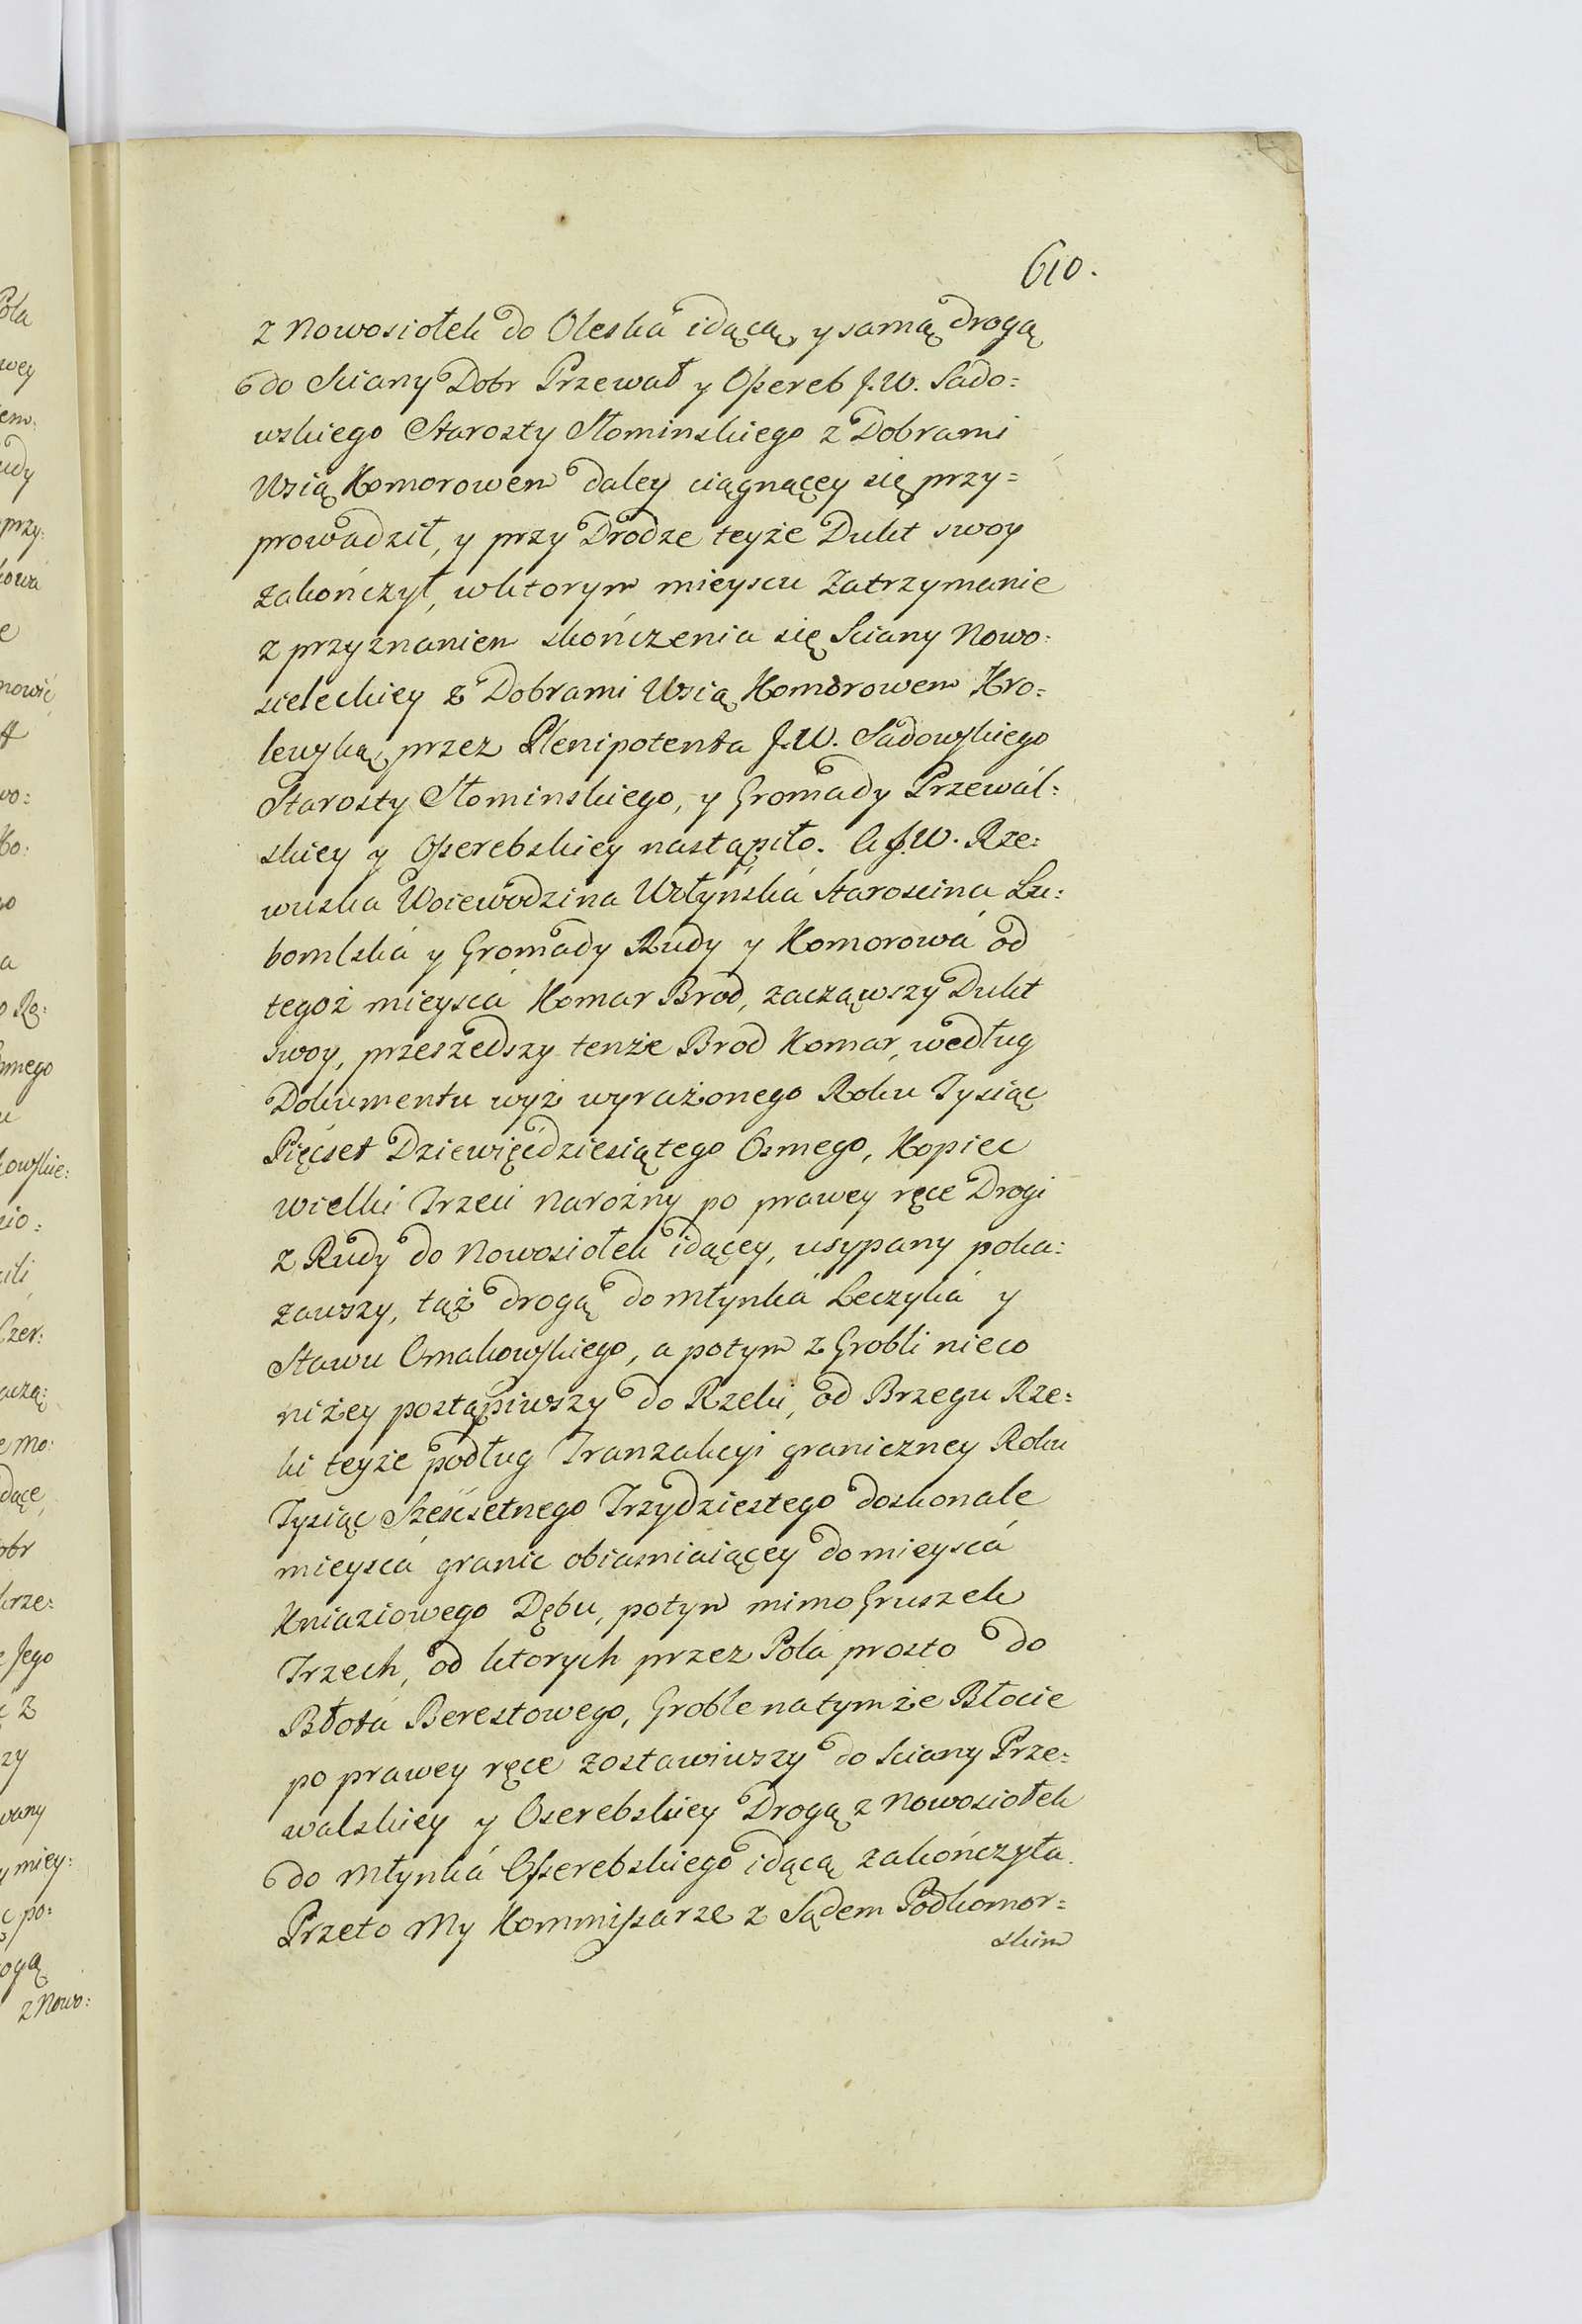 610.
z Nowosiołek do Oleska idącą, y samą drogą
do Sciany Dobr Przewał y Opereb J.W. Sado=
wskiego Starosty Słominskiego z Dobrami
Wsią Komorowem daley ciągnącęy się przy=
prowadził, y przy Drodze teyże Dukt swoy
zakończył, wktorym mieyscu Zatrzymanie
z przyznaniem skończenia się Sciany Nowo=
sieleckiey z Dobrami Wsią Komorowem Kro=
lewską, przez Plenipotenta J.W. Sadowskiego
Starosty Słominskiego, y Gromady Przewál=
skiey y Osserebskiey nastąpiło. A J.W. Rze=
wuska Woiewodzina Wołyńská Staroscina Lu=
bomlská y Gromady Rudy y Komorowá od
tegoż mieyscá Komar Brod, zacząwszy Dukt
swoy, przeszedszy tenże Brod Komar, według
Dokumentu wyż wyrażonego Roku Tysiąc
Pięcset Dziewięćdziesiątego Osmego, Kopiec
wielki Trzeci narożny po prawey ręce Drogi
z Rudy do Nowosiołek idącey, usypany poka=
zawszy, tąż drogą do młynká Leczyká y
Stawu Omakowskiego, a potym z Grobli nieco
niżey postąpiwszy do Rzeki, od Brzegu Rze=
ki teyże podług Tranzakcyi graniczney Roku
Tysiąc Sześćsetnego Trzydziestego doskonale
mieyscá granic obiasniaiącey do mieyscá
Kniaziowego Dębu, potym mimo Gruszek
Trzech, od ktorych przez Pola prosto do
Błotá Berestowego, Groble na tymże Błocie
po prawey ręce zostawiwszy do Sciany Prze=
walskiey y Oserebskiey Drogą z Nowosiołek
do Młynká Osserebskiego idącą zakończyła.
Przeto My Kommissarze z Sądem Podkomor=
skim